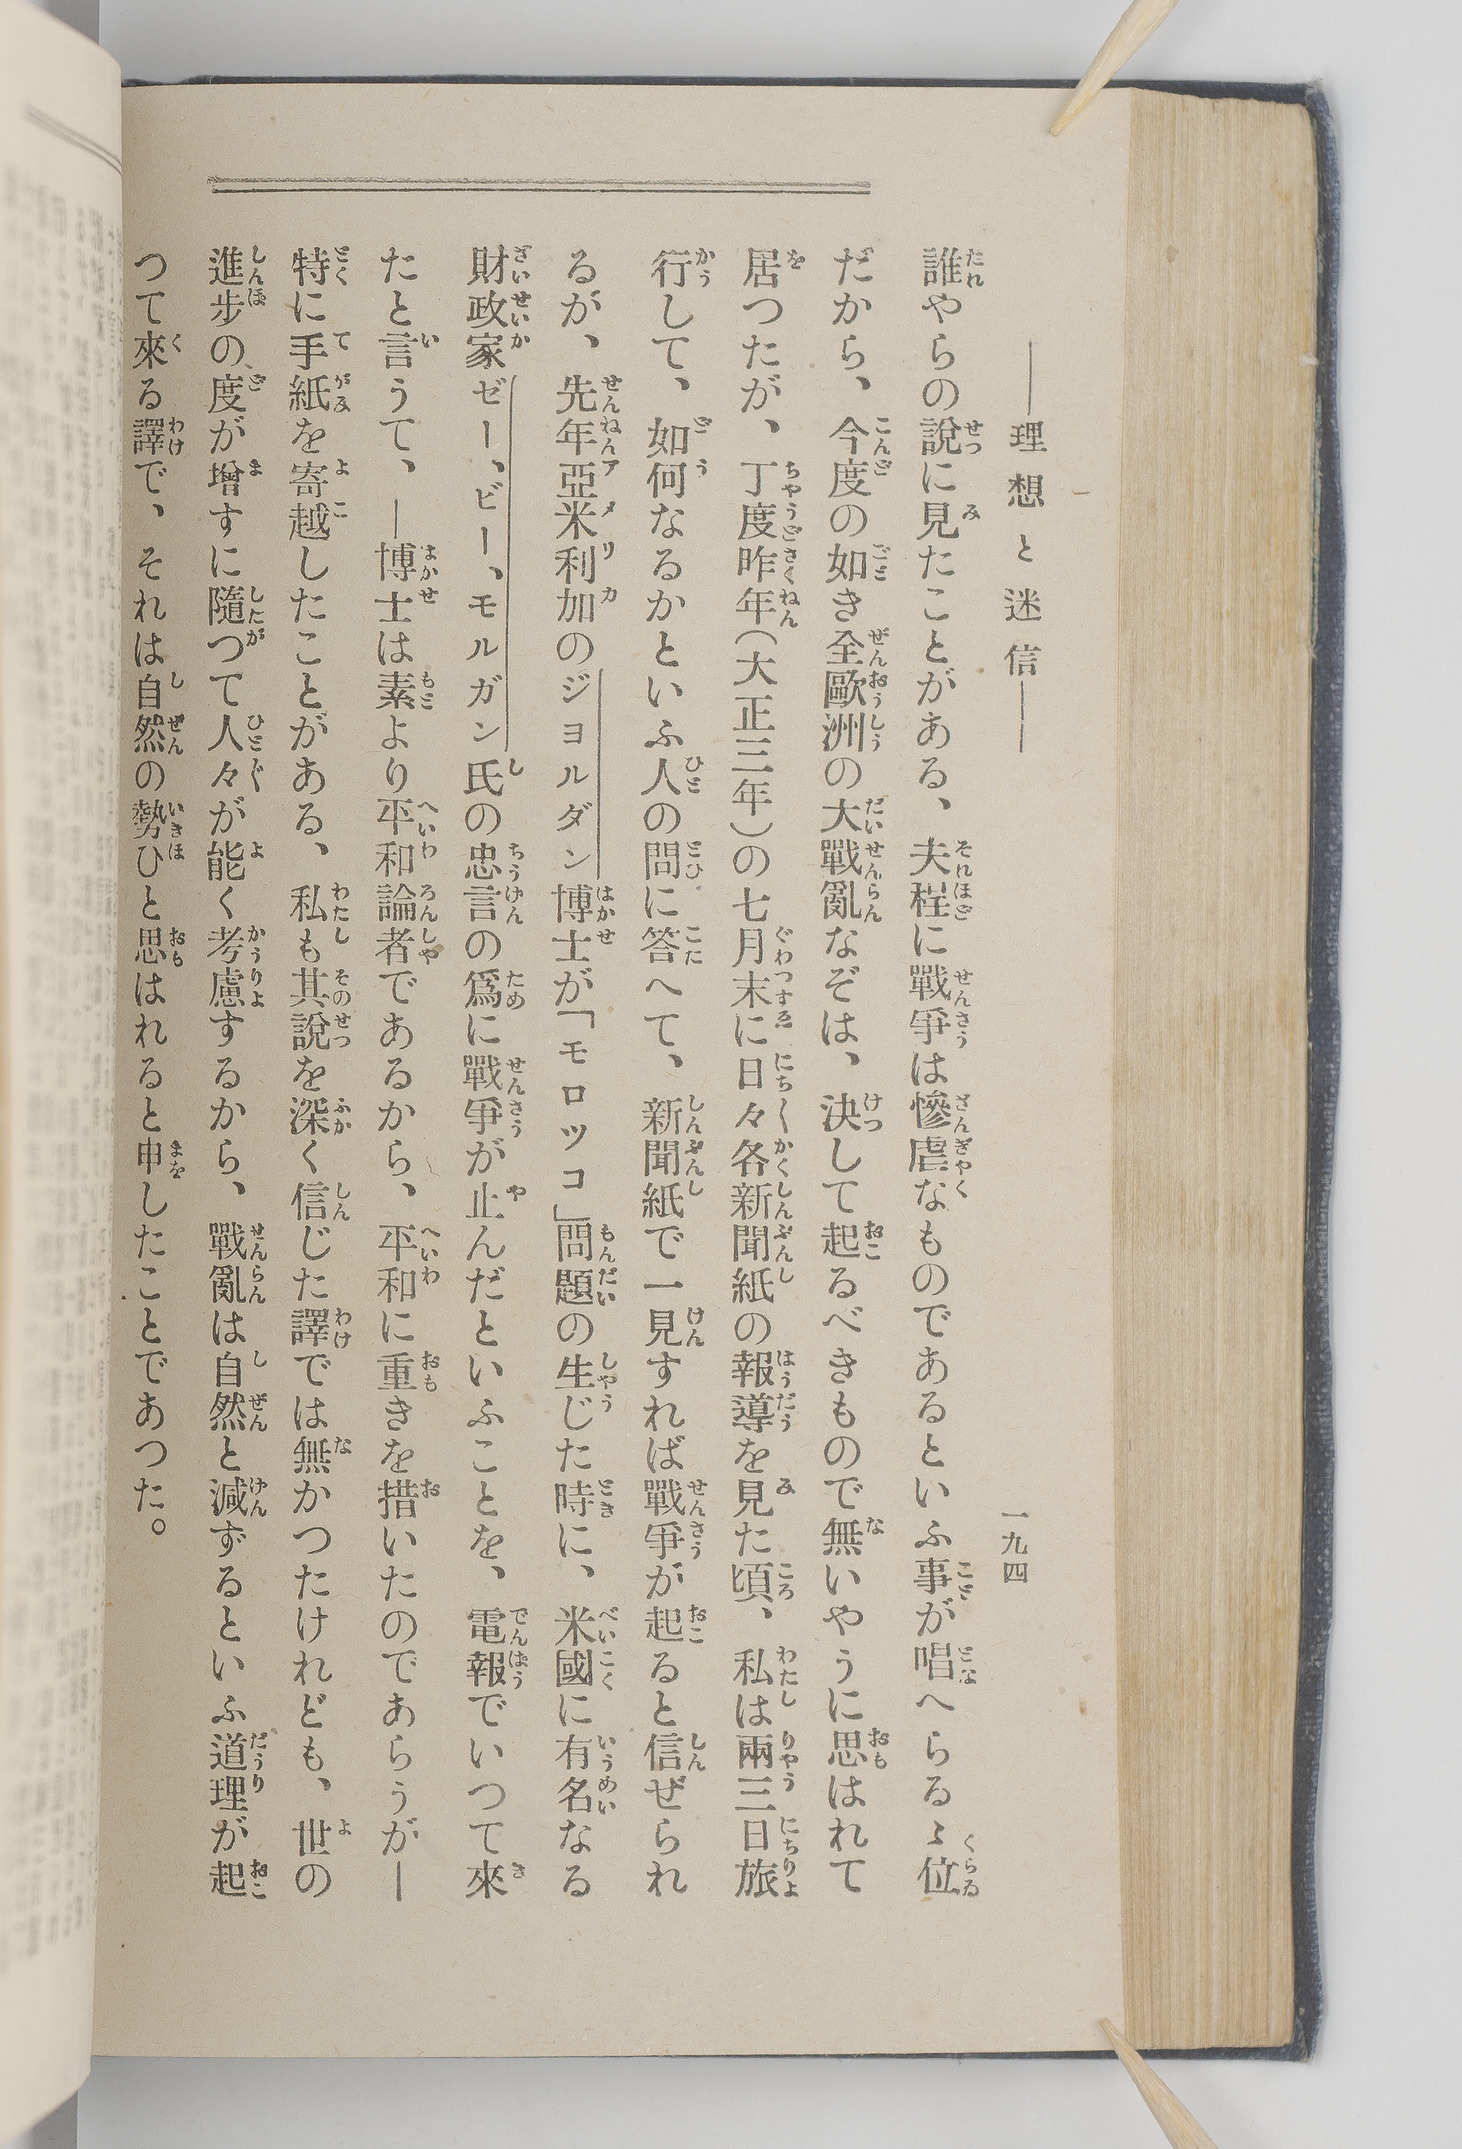 ―理想と迷信―
一九四
誰やらの説に見たことがある、夫程に戰爭は慘虐なものであるといふ事が唱へらるゝ位
だから、今度の如き全歐洲の大戰亂なぞは、決して起るべきもので無いやうに思はれて
居つたが、丁度昨年(大正三年)の七月末に日々各新聞紙の報導を見た頃、私は兩三日旅
行して、如何なるかといふ人の問に答へて、新聞紙で一見すれば戰爭が起ると信ぜられ
るが、先年亞米利加のジヨルダン博士が「モロツコ」問題の生じた時に、米國に有名なる
財政家ゼー、ビー、モルガン氏の忠言の爲に戰爭が止んだといふことを、電報でいつて來
たと言うて、―博士は素より平和論者であるから、平和に重きを措いたのであらうが―
特に手紙を寄越したことがある、私も其說を深く信じた譯では無かつたけれども、世の
進步の度が增すに隨つて人々が能く考慮するから、戰亂は自然と減ずるといふ道理が起
つて來る譯で、それは自然の勢ひと思はれると申したことであつた。